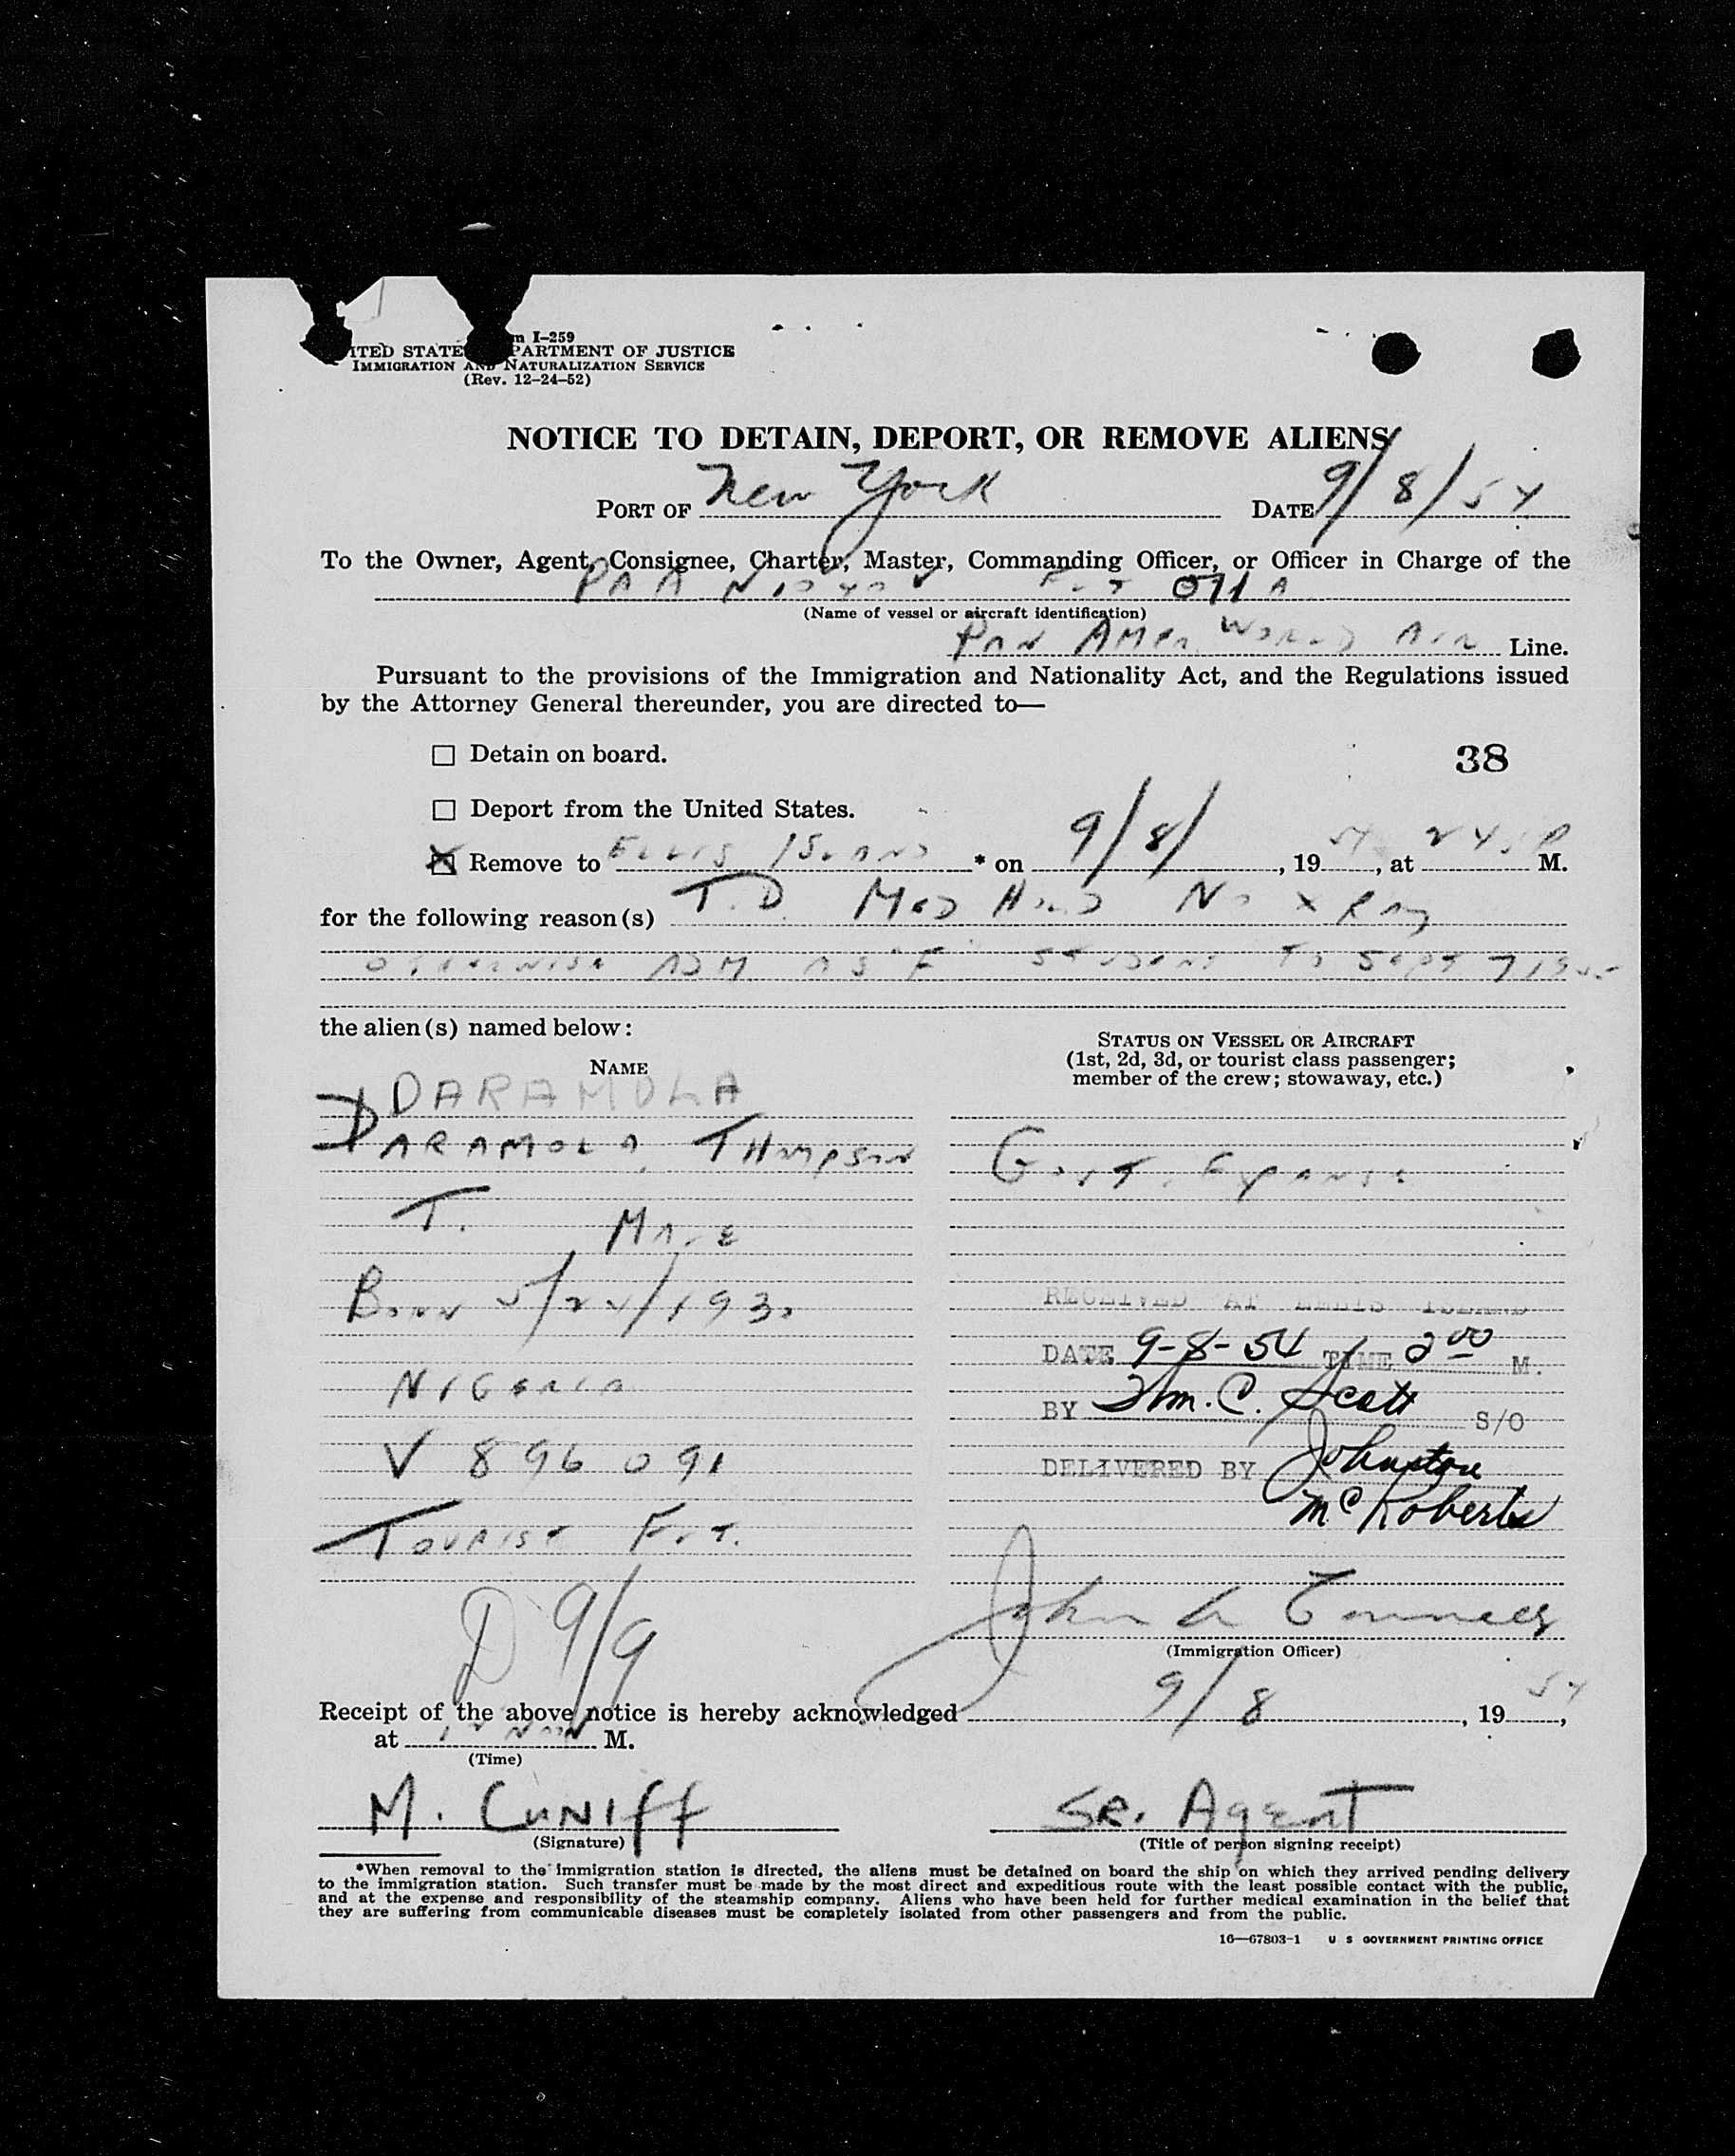 m I-259
ITED STATE PARTMENT OF JUSTICE
IMMIGRATION AND NATURALIZATION SERVICE
(Rev. 12-24-52)
NOTICE TO DETAIN, DEPORT, OR REMOVE ALIENS
PORT OF New York DATE 9/8/54
To the Owner, Agent, Consignee, Charter, Master, Commanding Officer, or Officer in Charge of the
PAA FLT 071 A
(Name of vessel or aircraft identification)
PAN AMER WORLD AIR Line.
Pursuant to the provisions of the Immigration and Nationality Act, and the Regulations issued
by the Attorney General thereunder, you are directed to—
☐ Detain on board.
38
☐ Deport from the United States.
☒ Remove to ELLIS ISLAND * on 9/8/, 1954, at P M.
for the following reason(s) T.D. MED HOLD NO X RAY
OTHERWISE ADM. AS "F" STUDENT TO SEPT 7 1955
the alien(s) named below:
NAME
STATUS ON VESSEL OR AIRCRAFT
(1st, 2d, 3d, or tourist class passenger;
member of the crew; stowaway, etc.)
DARAMOLA
DARAMOLA, THOMPSON
GOVT. EXPENSE
T. MALE
BORN 5/24/1930
RECEIVED AT ELLIS ISLAND
DATE 9-8-54 TIME 2 00 M.
NIGERIA
BY Wm. C. Scott S/O
V 896 091
DELIVERED BY Johnston
McRoberts
TOURIST FLT.
D 9/9
John
(Immigration Officer)
Receipt of the above notice is hereby acknowledged 9/8, 1954,
at 12 NOON M.
(Time)
M. CUNIFF
SR. AgENT
(Signature)
(Title of person signing receipt)
*When removal to the immigration station is directed, the aliens must be detained on board the ship on which they arrived pending delivery
to the immigration station. Such transfer must be made by the most direct and expeditious route with the least possible contact with the public,
and at the expense and responsibility of the steamship company. Aliens who have been held for further medical examination in the belief that
they are suffering from communicable diseases must be completely isolated from other passengers and from the public.
16—67803-1 U S GOVERNMENT PRINTING OFFICE